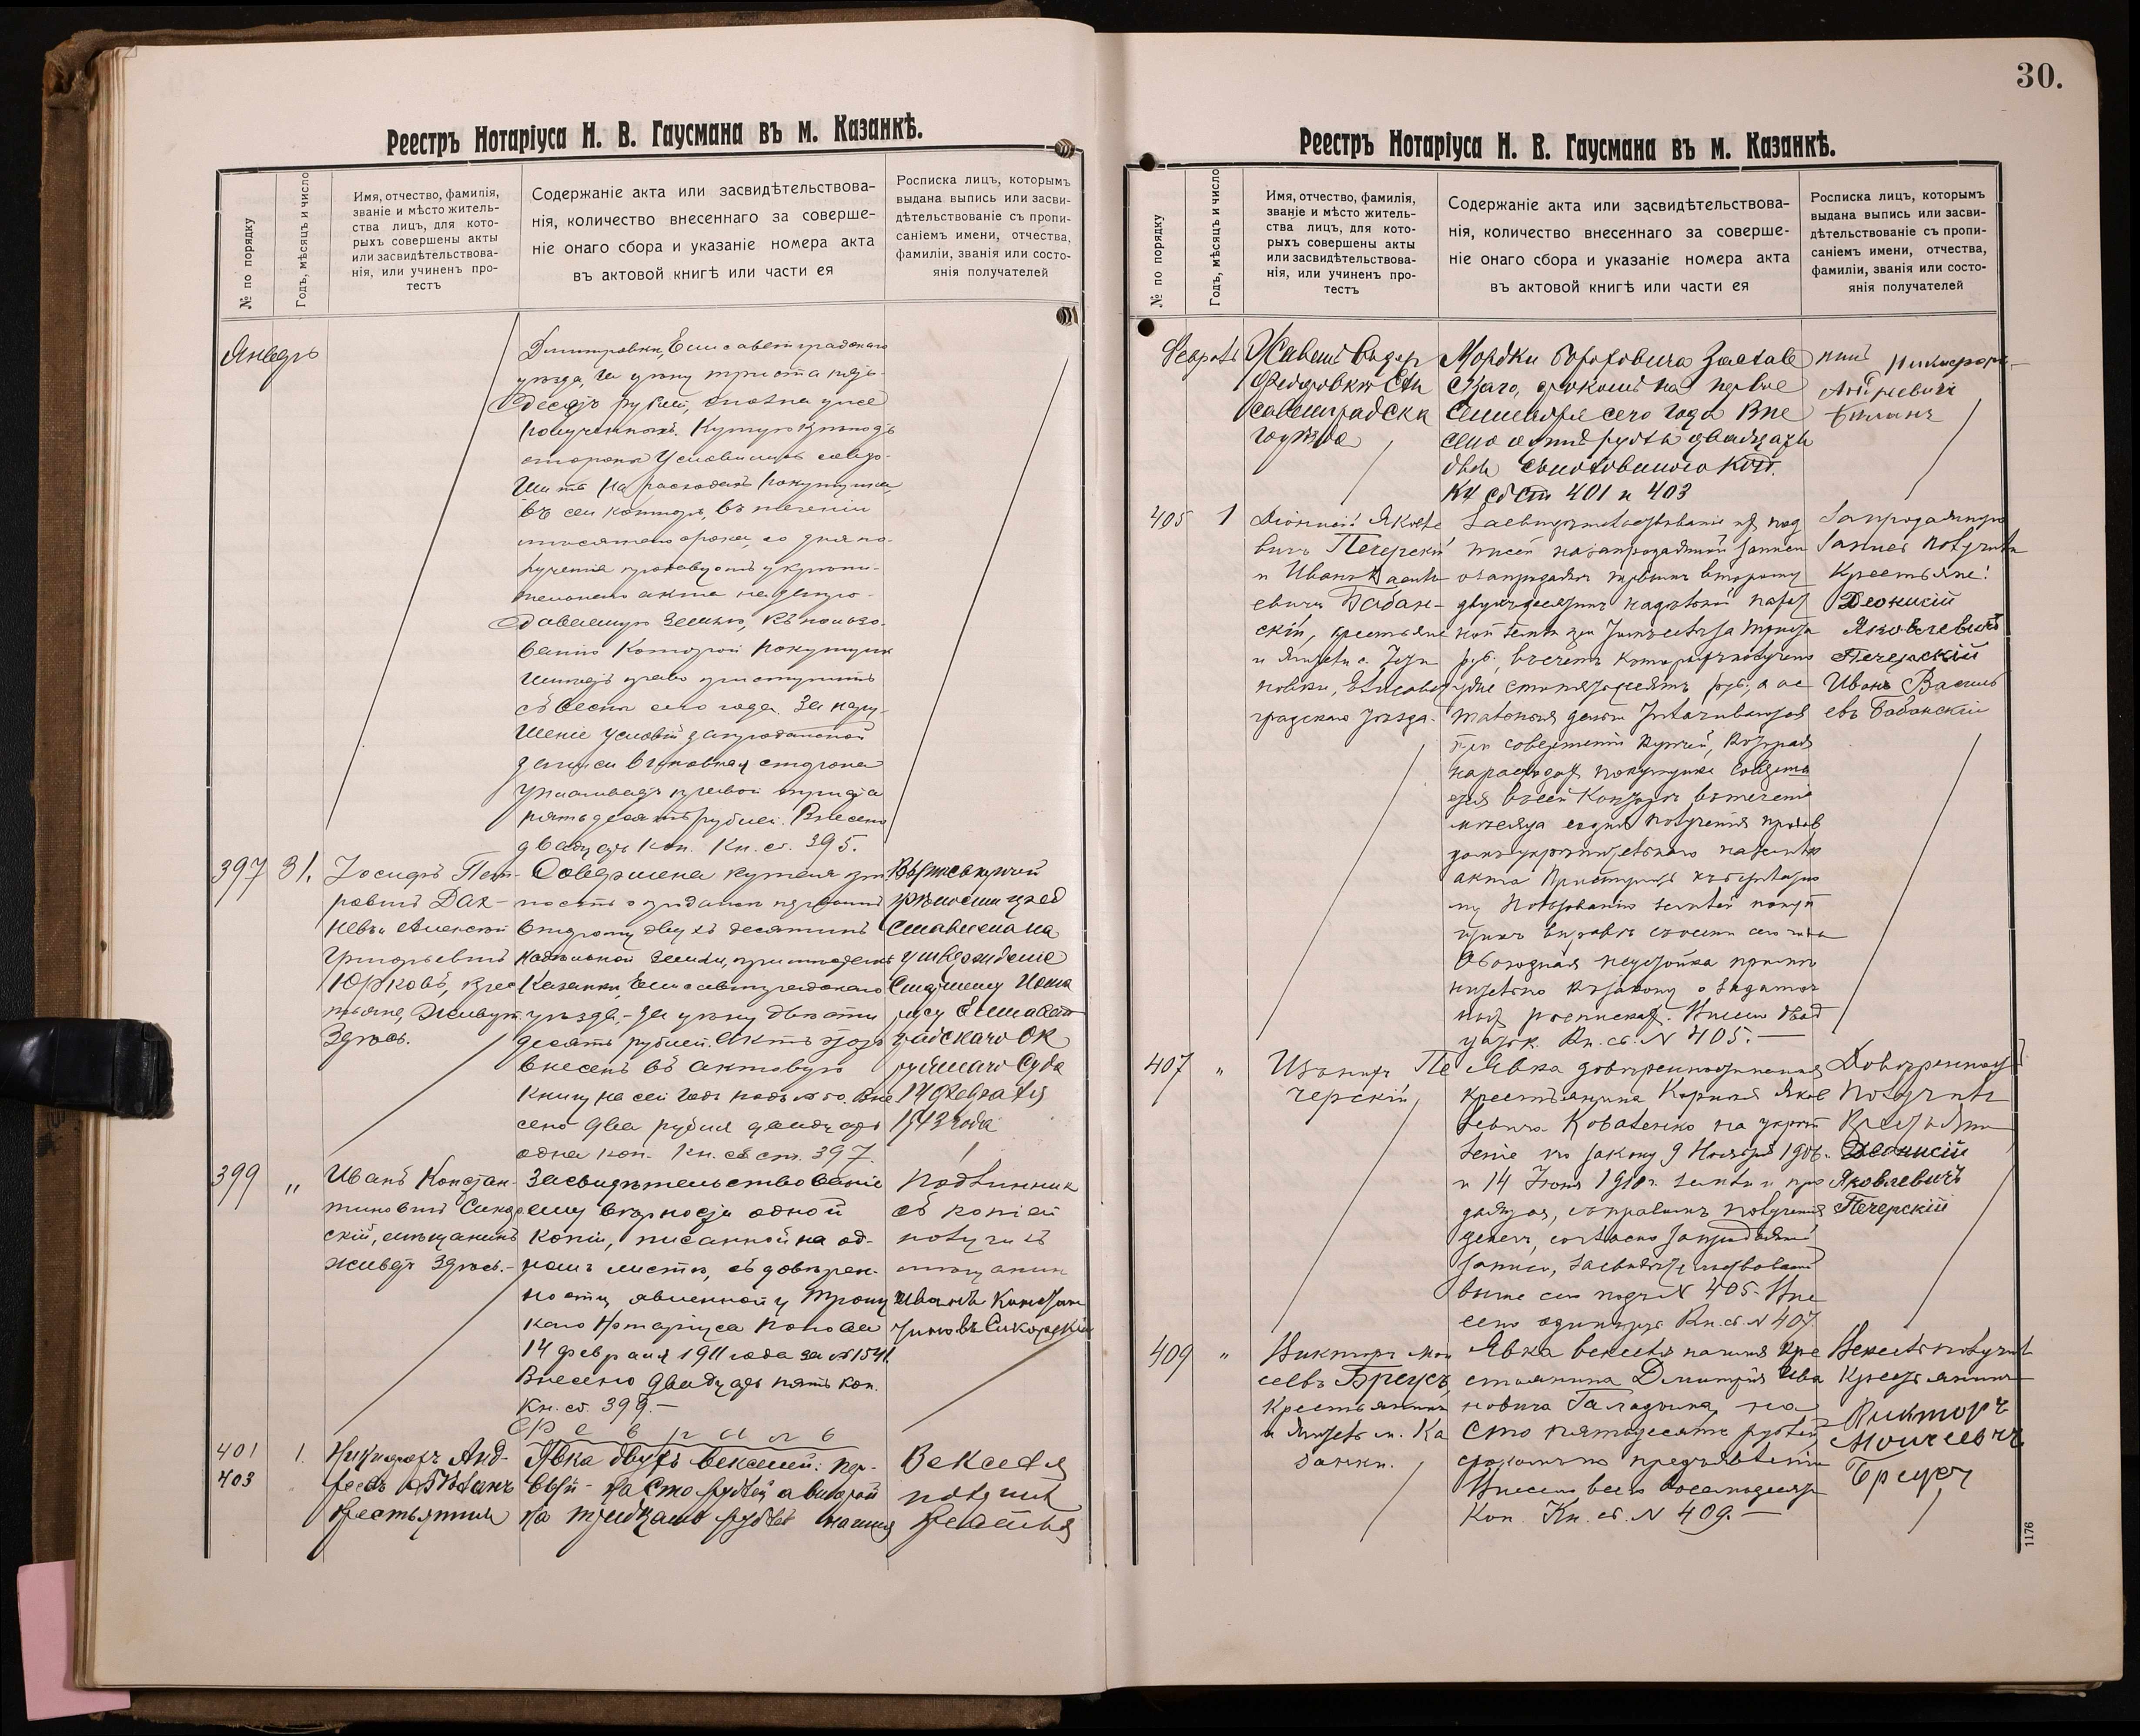 Реестръ Нотаріуса Н. В. Гаусмана въ м. Казанкѣ.
№ по порядку
Годъ, мѣсяцъ и число
Имя, отчество, фамилія,
званіе и мѣсто житель-
ства лицъ, для кото-
рыхъ совершены акты
или засвидѣтельствова-
нія, или учиненъ про-
тестъ
Содержаніе акта или засвидѣтельствова-
нія, количество внесеннаго за соверше-
ніе онаго сбора и указаніе номера акта
въ актовой книгѣ или части ея
Росписка лицъ, которымъ
выдана выпись или засви-
дѣтельствованіе съ пропи-
саніемъ имени, отчества,
фамиліи, званія или состо-
янія получателей
Январь
Дмитровки, Елисаветградскаго
уѣзда, за цѣну триста пять-
десятъ рублей, сполна уже
полученныхъ. Купчую крѣпость
стороны условились совер-
шить на расходахъ покупщика,
въ сей конторѣ, въ теченіи
мѣсячнаго срока, со дня по-
лученія продавцомъ укрѣпи-
тельнаго акта на запро-
даваемую землю, къ пользо-
ванію которой покупщик
имѣетъ право приступить
съ весны сего года. За нару-
шеніе условій запродажной
записи виновная сторона
уплачиваетъ правой триста
пятьдесятъ рублей. Внесено
двадцать коп. Кн. сб. 395.
397 31.
Іосифъ Пет-
ровичъ Дак-
невъ и Алексѣй
Григорьевичъ
Юрковъ, крес
тьяне, живут.
Здѣсь.
Совершена купчая крѣ
пость о продажѣ первымъ
второму двухъ десятинъ
надѣльной земли, при мѣстечкѣ
Казанкѣ, Елисаветградскаго
уѣзда,- за цѣну двѣсти
десять рублей. Актъ этотъ
внесенъ въ актовую
книгу на сей годъ подъ № 50. Вне
сено два рубля двадцать
одна коп. Кн. сб. ст. 397.
Выпись купчей
крѣпости пред
ставлена на
утвержденіе
Старшему Нота
ріусу Елисавет
градскаго Ок
ружнаго Суда
14 Февраля
1913 года
399 "
Иванъ Констан-
тиновичъ Сикор
скій, мѣщанинъ
живетъ здѣсь.-
Засвидѣтельствованіе
ему вѣрности одной
копіи, писанной на од-
номъ листѣ, съ довѣрен-
ности, явленной у
каго Нотаріуса Попова
14 февраля 1911 года за № 1541.
Внесено двадцать пять коп.
Кн. сб. 399.-
Подлинник
съ копіей
получилъ
мѣщанин
Иванъ Констан
тиновъ Сикорскій
Февраль
401
403
1.
Никифоръ Анд-
реевъ
Крестьянинъ
Явка двухъ векселей: пер-
вый - на сто рублей а второй
на тридцать рублей на имя
Векселя
получилъ
Реестръ Нотаріуса Н. В. Гаусмана въ м. Казанкѣ.
30.
№ по порядку
Годъ, мѣсяцъ и число
Имя, отчество, фамилія,
званіе и мѣсто житель-
ства лицъ, для кото-
рыхъ совершены акты
или засвидѣтельствова-
нія, или учиненъ про-
тестъ
Содержаніе акта или засвидѣтельствова-
нія, количество внесеннаго за соверше-
ніе онаго сбора и указаніе номера акта
въ актовой книгѣ или части ея
Росписка лицъ, которымъ
выдана выпись или засви-
дѣтельствованіе съ пропи-
саніемъ имени, отчества,
фамиліи, званія или состо-
янія получателей
Февраль
Живетъ в дер
Федоровкѣ Ели
саветградска
го уѣзда
Мордки
срокомъ на первое
Сентября сего года Вне
сено одинъ рубль двадцать
двѣ коп.
Кн сб ст 401 и 403
нинъ Никифоръ
Андреевичъ
405 1
Діонисій Яковле
вичъ Печерскій
и Иванъ Василь
евичъ Бабан-
скій, крестьяне
Елисавет
градскаго уѣзда.
Засвидѣтельствованіе
писей на запродажной записи
о запродажѣ первымъ второму
двухъ десятинъ надѣльной
ной земли
руб., въ счетъ которыхъ получено
уже сто пятьдесятъ руб., а ос
тальныя деньги уплачиваются
при совершеніи купчей, которая
на расходахъ покупщика соверша
ется въ сей конторѣ въ теченіе
мѣсяца со дня полученія продав
цомъ укрѣпительнаго на землю
акта Приступить къ
му пользованію землей покуп
щикъ вправѣ съ весны сего года
Обоюдная неустойка
къ закону о задаточ
ныхъ роспискахъ. Внесено двад
цать к. Кн. сб. N 405.-
Запродажную
запись получили
Крестьяне:
Деонисій
Яковлевичъ
Печерскій
Иванъ Василь
евъ Бабанскій
407 "
Пе
черскій,
Явка довѣренности на имя
крестьянина Корнея Яков
левича Коваленко на укрѣп
леніе по закону 9 Ноября 1906г.
и 14 Іюня 1910 г. земли и про
дажу ея, съ правомъ полученія
денегъ, согласно запродажной
записи, засвидѣтельствованной
выше сего подъ N 405. Вне
сено Кн. сб. N 407.
Довѣренность
Получилъ
Крестьянин
Деонисій
Яковлевичъ
Печерскій
409 "
Викторъ Мои
сеевъ Бреусъ,
Крестьянинъ
м. Ка
занки.
Явка векселя на имя кре
стьянина Дмитрія Ива
новича на
сто пятьдесятъ рублей
срокомъ по предъявленіи
Внесено всего восемьдесятъ
Коп. Кн. сб. N 409.-
Вексель получилъ
Крестьянинъ
Викторъ
Моисеевичъ
Бреусъ
1176